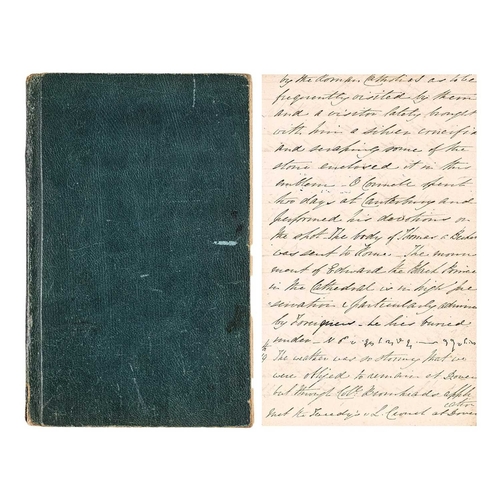 by the Roman Catholics as to be
frequently visited by them
and a visitor lately brought
with him a silver crucifix
and scraping some of the
stone enclosed it in this
emblem - O'Connell spent
two days at Canterbury and
performed his devotions on
the spot. The body of Thomas a Becket
was sent to Rome - The monu
ment of Edward the third
in the Cathedral is in high pre
servation & particularly admired
by Foreigners - he lies buried
under -
The water was so stormy that we
were obliged to remain at Dover
but through Coll
that the Tuesday at Dover